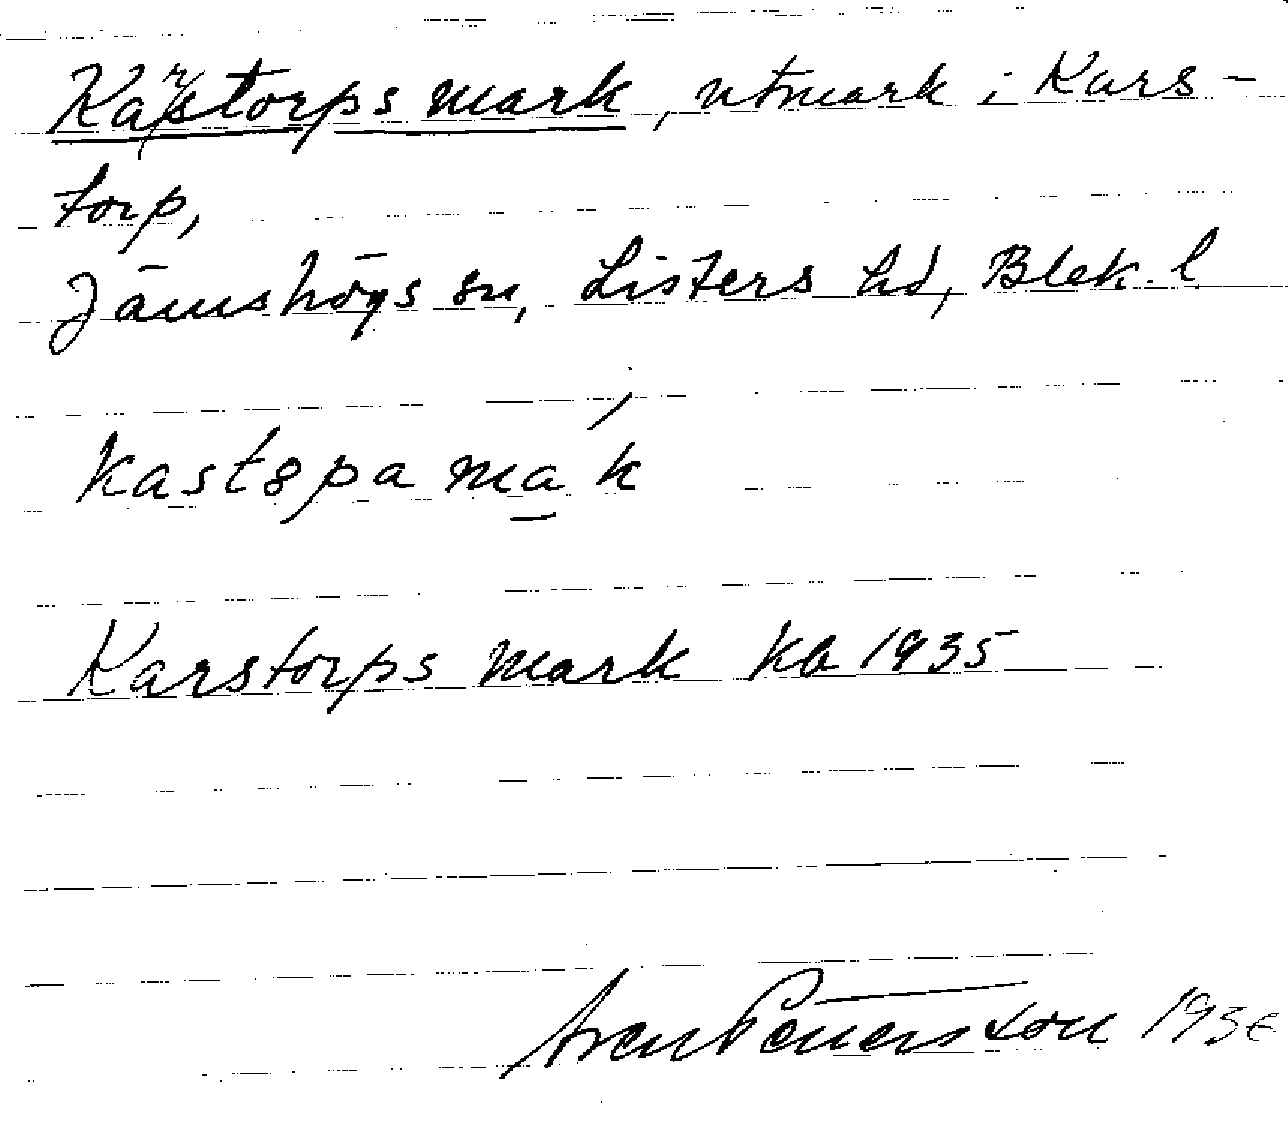 Karstorps mark, utmark i Kars-
torp,
Jämshögs sn, Listers hd, Blek. l
kastspa mak
Karstorps mark kb 1935
Pettersson